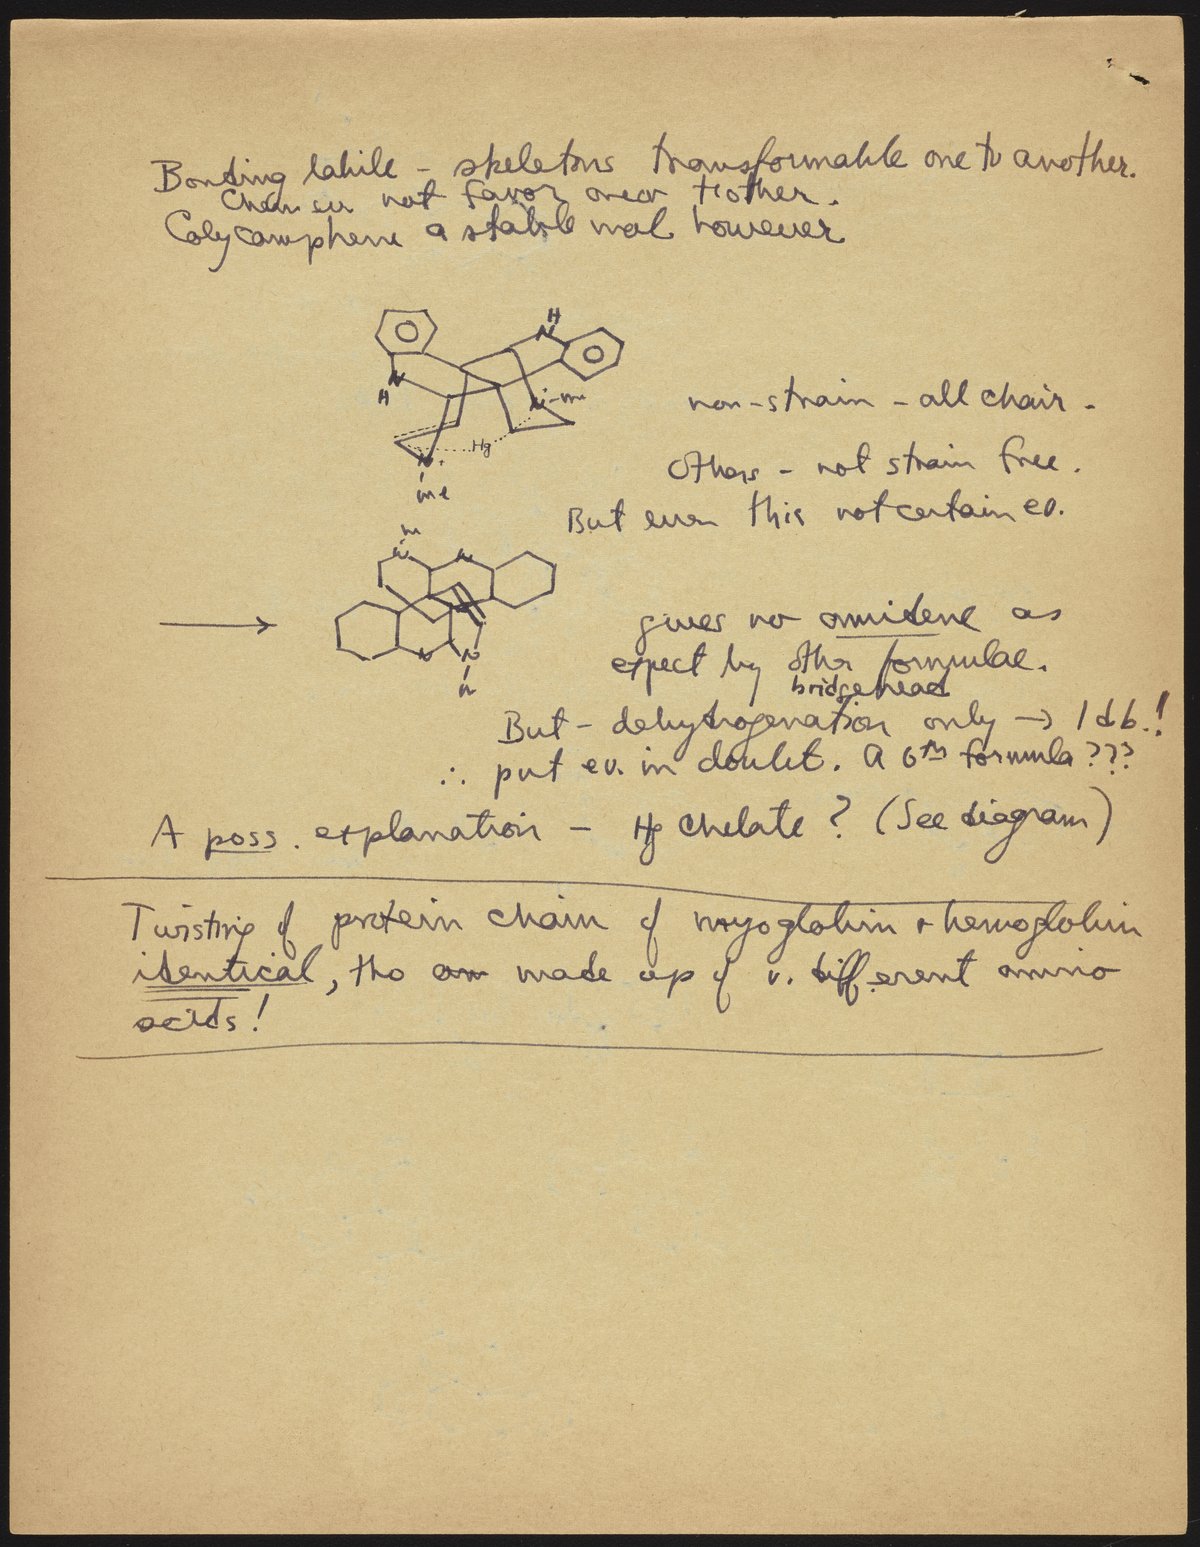 Bonding labile – skeletons transformable one to another.
Chem ev not favor one or tother.
Calycanthene a stable mol however
H
N
N
H
N-me
Hg
N
me
non-strain – all chair –
Others – not strain free.
But even this not certain ev.
m
N
N
N
N
m
gives no amidene as
expect by other formulae.
bridgehead
But – dehydrogenation only → 1 db.!
∴ put ev. in doubt. A 6th formula???
A poss. explanation – Hg chelate? (See diagram)
Twisting of protein chain of myoglobin + hemoglobin
identical, tho made up of v. different amino
acids!